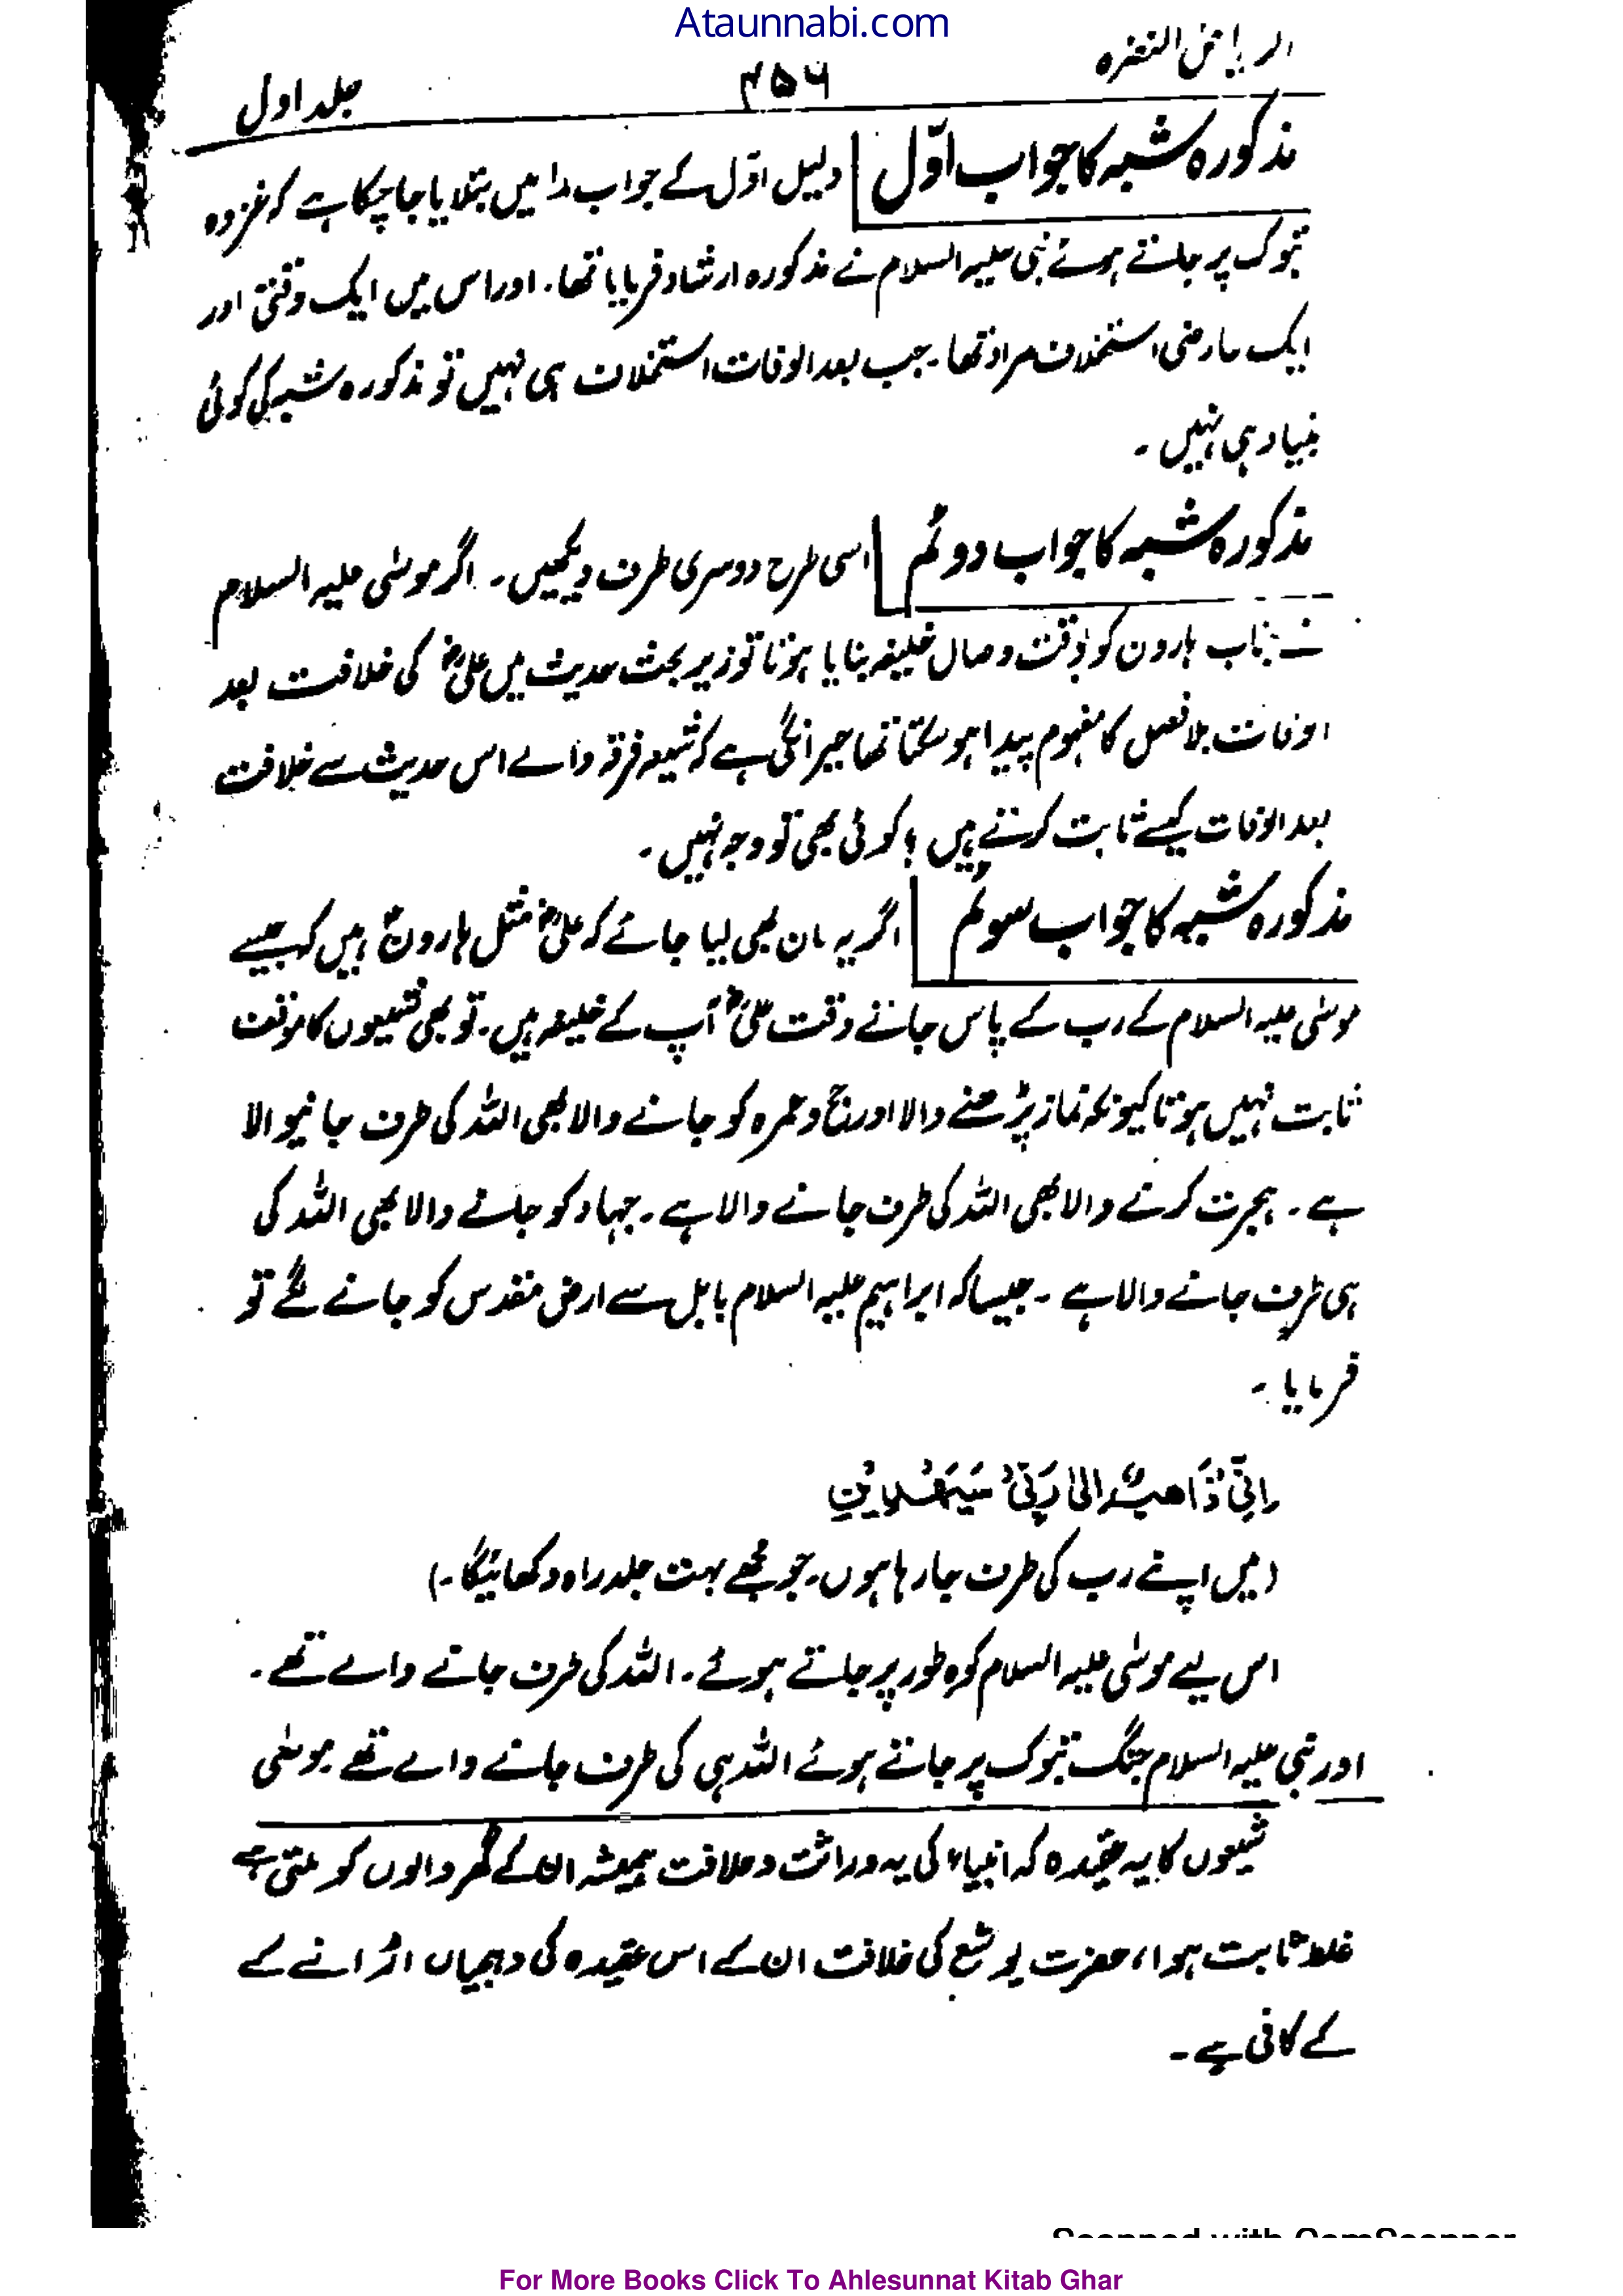 Ataunnabi.com
الریاض النضرہ
۴۵۶
جلد اول
مذکورہ شبہ کا جواب اوّل
دلیل اوّل کے جواب ۱ میں بتلایا جا چکا ہے کہ غزوہ
تبوک پر جاتے ہوئے نبی علیہ السلام نے مذکورہ ارشاد فرمایا تھا۔ اور اس میں ایک وقتی اور
ایک عارضی استخلاف مراد تھا۔ جب بعد الوفات استخلاف ہی نہیں تو مذکورہ شبہ کی کوئی
بنیاد ہی نہیں۔
مذکورہ شبہ کا جواب دوئم
اسی طرح دوسری طرف دیکھیں۔ اگر موسٰی علیہ السلام
نے جناب ہارون کو وقت وصال خلیفہ بنایا ہوتا تو زیر بحث حدیث میں علیؓ کی خلافت بعد
اوفات بلا فصل کا مفہوم پیدا ہو سکتا تھا حیرانگی ہے کہ شیعہ فرقہ والے اس حدیث سے خلافت
بعد الوفات کیسے ثابت کرتے ہیں؟ کوئی بھی تو وجہ نہیں۔
مذکورہ شبہ کا جواب سوئم
اگر یہ مان بھی لیا جائے کہ علیؓ مثل ہارونؑ ہیں کہ جیسے
موسٰی علیہ السلام کے رب کے پاس جاتے وقت علیؓ آپ کے خلیفہ ہیں۔ تو بھی شیعوں کا موقف
ثابت نہیں ہوتا کیونکہ نماز پڑھنے والا اور حج و عمرہ کو جانے والا بھی اللہ کی طرف جانیوالا
ہے۔ ہجرت کرنے والا بھی اللہ کی طرف جانے والا ہے۔ جہاد کو جانے والا بھی اللہ کی
ہی طرف جانے والا ہے۔ جیسا کہ ابراہیم علیہ السلام بابل سے ارض مقدس کو جانے لگے تو
فرمایا۔
اِنِّیْ ذَاھِبٌ اِلیٰ رَبِّیْ سَیَھْدِیْنِ
(میں اپنے رب کی طرف جا رہا ہوں۔ جو مجھے بہت جلد راہ دکھائیگا۔)
اس لیے موسٰی علیہ السلام کوہ طور پر جاتے ہوئے۔ اللہ کی طرف جاتے والے تھے۔
اور نبی علیہ السلام جنگ تبوک پر جاتے ہوئے اللہ ہی کی طرف جانے والے تھے۔ موسٰی
شیعوں کا یہ عقیدہ کہ انبیاء کی یہ وراثت و خلافت ہمیشہ ان کے گھر والوں کو ملتی ہے
غلط ثابت ہوا، حضرت یوشع کی خلافت ان کے اس عقیدہ کی دھجیاں اڑانے کے
کے کافی ہے۔
Scanned with CamScanner
For More Books Click To Ahlesunnat Kitab Ghar